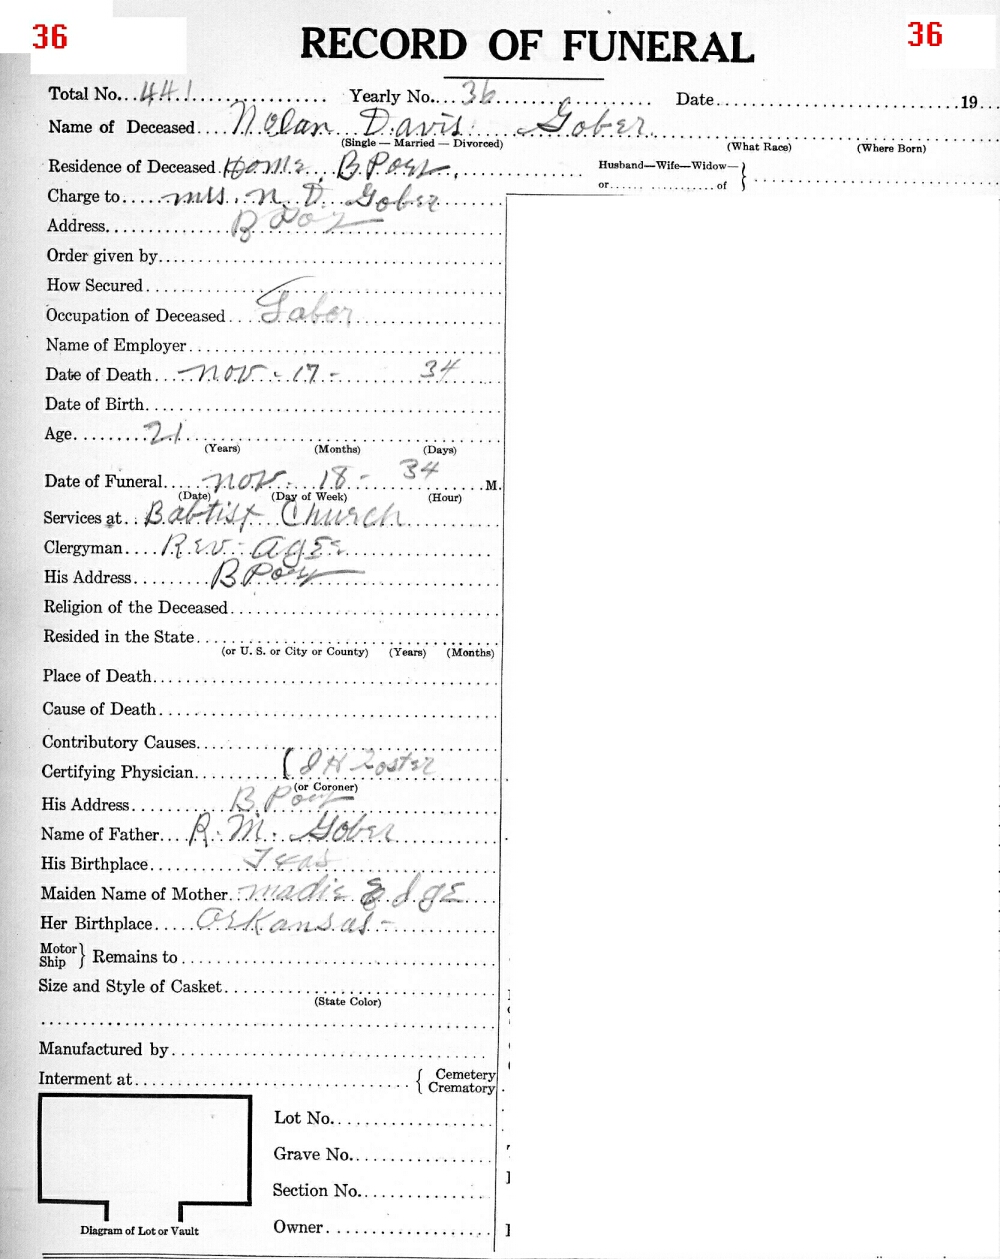 36 36
RECORD OF FUNERAL
Total No. 441 Yearly No. 36 Date 19
Name of Deceased Nolan Davis Gober
(Single — Married — Divorced) (What Race) (Where Born)
Residence of Deceased Home, B Port, Husband—Wife—Widow—}
or of
Charge to Mrs. N. D. Gober
Address B Port
Order given by
How Secured
Occupation of Deceased Labor
Name of Employer
Date of Death Nov - 17 - 34
Date of Birth
Age 21
(Years) (Months) (Days)
Date of Funeral Nov. 18 - 34 M.
(Date) (Day of Week) (Hour)
Services at Babtist Church
Clergyman Rev. Agee
His Address B Port
Religion of the Deceased
Resided in the State
(or U. S. or City or County) (Years) (Months)
Place of Death
Cause of Death
Contributory Causes
Certifying Physician { J H Foster
(or Coroner)
His Address B Port
Name of Father R. M. Gober
His Birthplace Texas
Maiden Name of Mother Madie Edge
Her Birthplace Arkansas -
Motor
Ship } Remains to
Size and Style of Casket
(State Color)
Manufactured by
Interment at { Cemetery
Crematory
Lot No.
Grave No.
Section No.
Diagram of Lot or Vault Owner